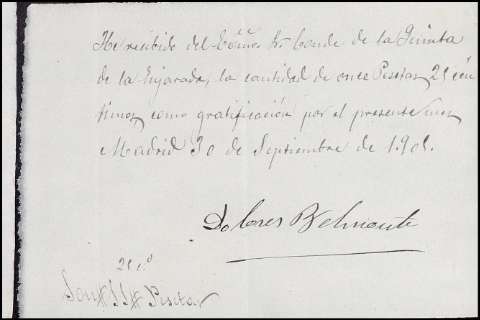 He recibido del Excmo. Sr. Conde de la Quinta
de la Enjarada, la cantidad de once Pesetas 25 cén
timos como gratificación por el presente mes
Madrid 30 de Septiembre de 1.901.
Dolores Belmonte
25 c.º
Son # 11 # Pesetas